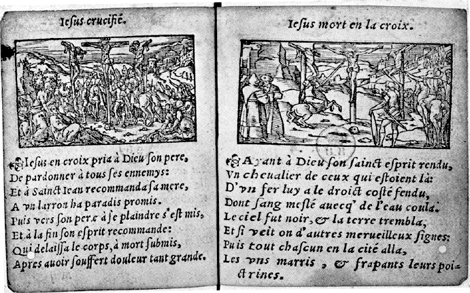 Iesus crucifié.
Iesus en croix pria à Dieu son pere,
De pardonner à tous ses ennemys:
Et à Sainct Iean recommanda sa mere,
A vn larron ha paradis promis.
Puis vers son pere à se plaindre s'est mis,
Et à la fin son esprit recommande:
Qui delaissa le corps, à mort submis,
Apres auoir souffert douleur tant grande.
Iesus mort en la croix.
Ayant à Dieu son sainct esprit rendu,
Vn cheualier de ceux qui estoient là:
D'vn fer luy a le droict costé fendu,
Dont sang meslé auecq' de l'eau coula.
Le ciel fut noir, & la terre trembla,
Et si veit on d'autres merueilleux signes:
Puis tout chascun en la cité alla,
Les vns marris, & frapants leurs poi-
ctrines.